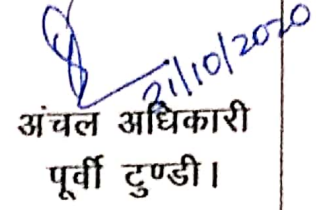 21/10/2020
अंचल अधिकारी
पूर्वी टुण्डी।